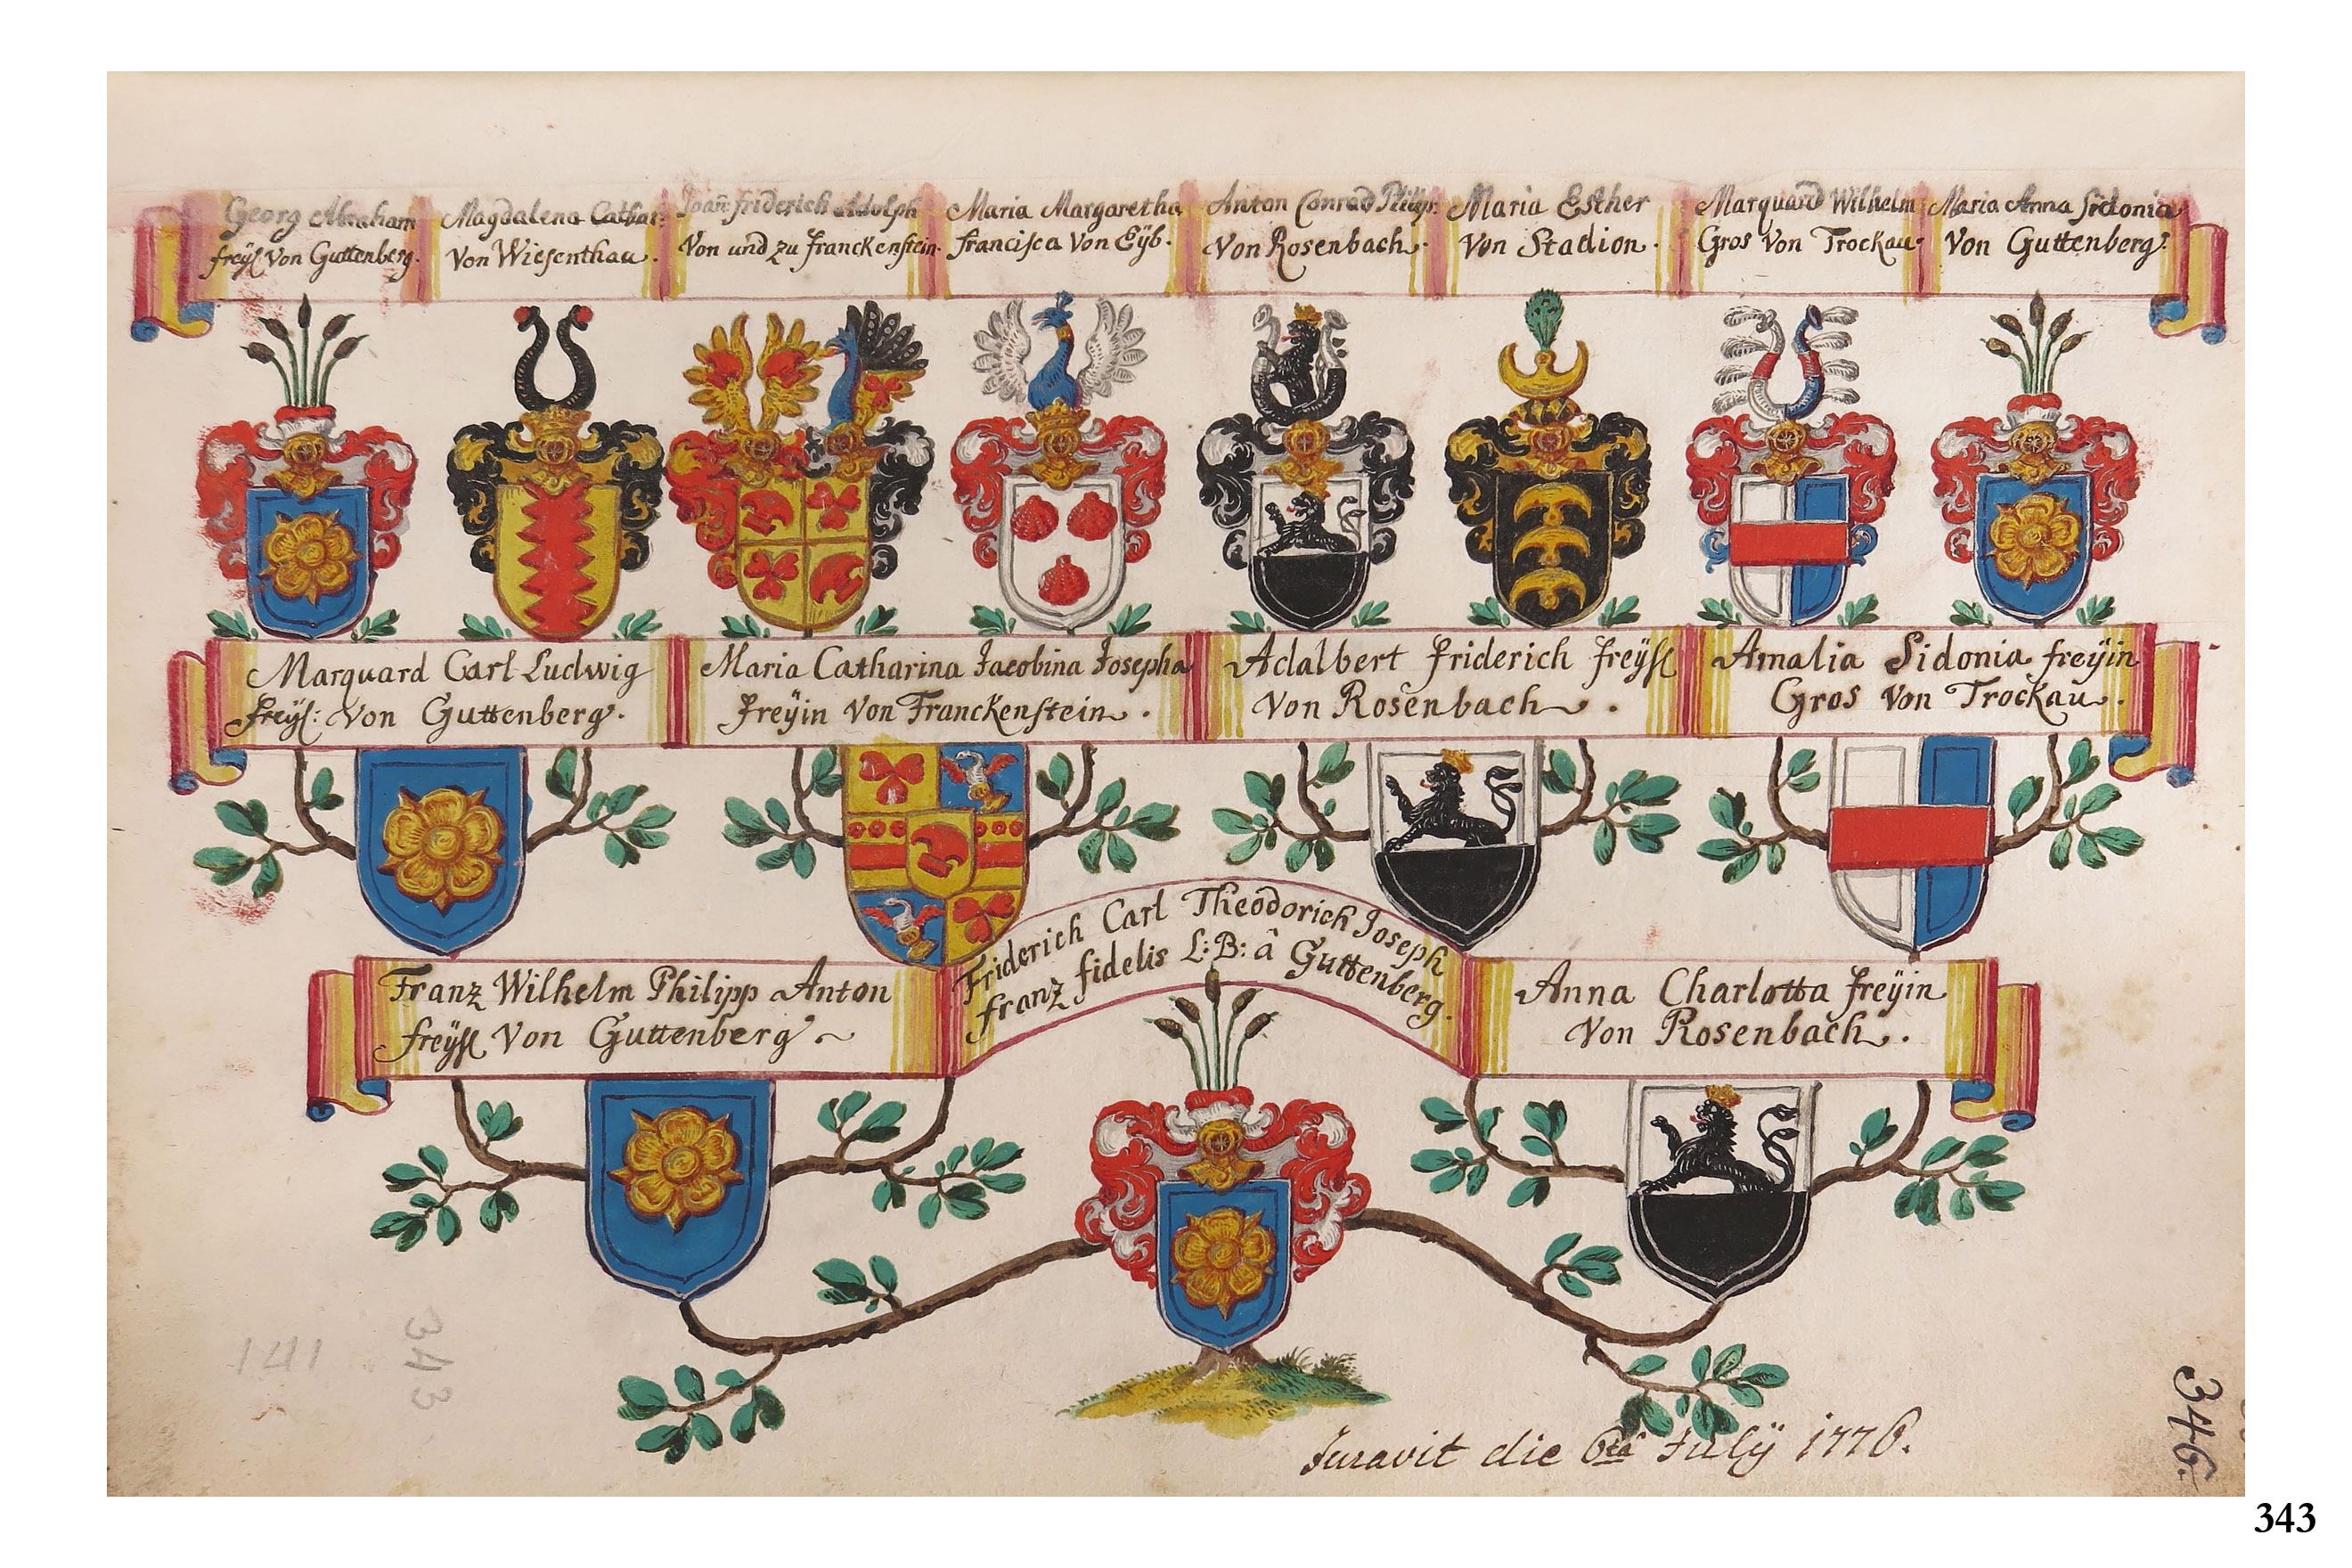 Georg Abraham
freÿß Von Guttenberg.
Magdalena Cathar:
Von Wiesenthau.
Joañ: friderich Adolph
Von und zu Franckenstein.
Maria Margaretha
francisca Von Eÿb.
Anton Conrad Philip:
Von Rosenbach.
Maria Esther
Von Stadion.
Marquard Wilhelm
Gros Von Trockau.
Maria Anna Sidonia
Von Guttenberg.
Marquard Carl Ludwig
freÿß: Von Guttenberg.
Maria Catharina Jacobina Josepha
Freÿin Von Franckenstein.
Adalbert Friderich Freÿß
Von Rosenbach.
Amalia Sidonia freÿin
Gros Von Trockau.
Franz Wilhelm Philipp Anton
freÿß Von Guttenberg.
Friderich Carl Theodorich Joseph
franz fidelis L: B: â Guttenberg.
Anna Charlotta freÿin
Von Rosenbach.
Juravit die 6ta Julÿ 1776.
141
343
346.
343